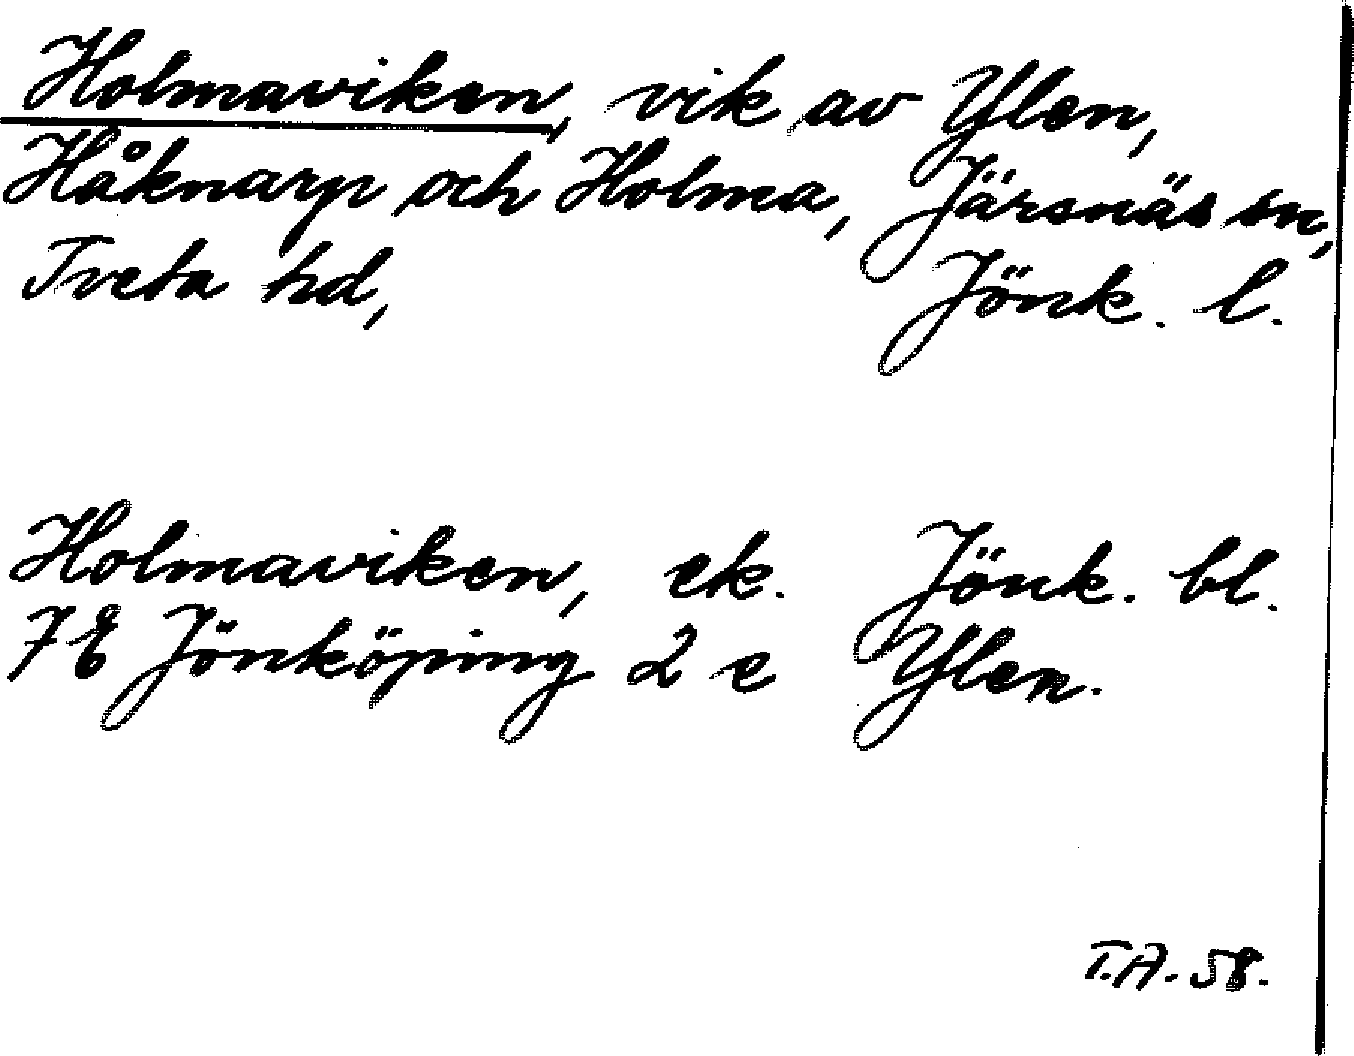 Holmaviken, vik av Ylen,
Håknarp och Holma, Järsnäs sn,
Tveta hd, Jönk. l.
Holmaviken, ek. Jönk. bl.
7E Jönköping 2 e Ylen.
T.A. 58.